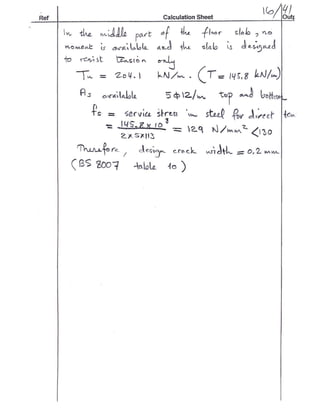 Ref Calculation Sheet Outp
16/41
In the middle part of the floor slab, no
moment is available and the slab is designed
to resist tension only
Tu = 204.1 kN/m. (T = 145.8 kN/m)
As available 5ϕ12/m top and bottom
fs = service stress in steel for direct ten
= 145.8 x 10³ / 2 x 5 x 113 = 129 N/mm² < 130
Therefore, design crack width = 0.2 mm
(BS 8007 table 10)